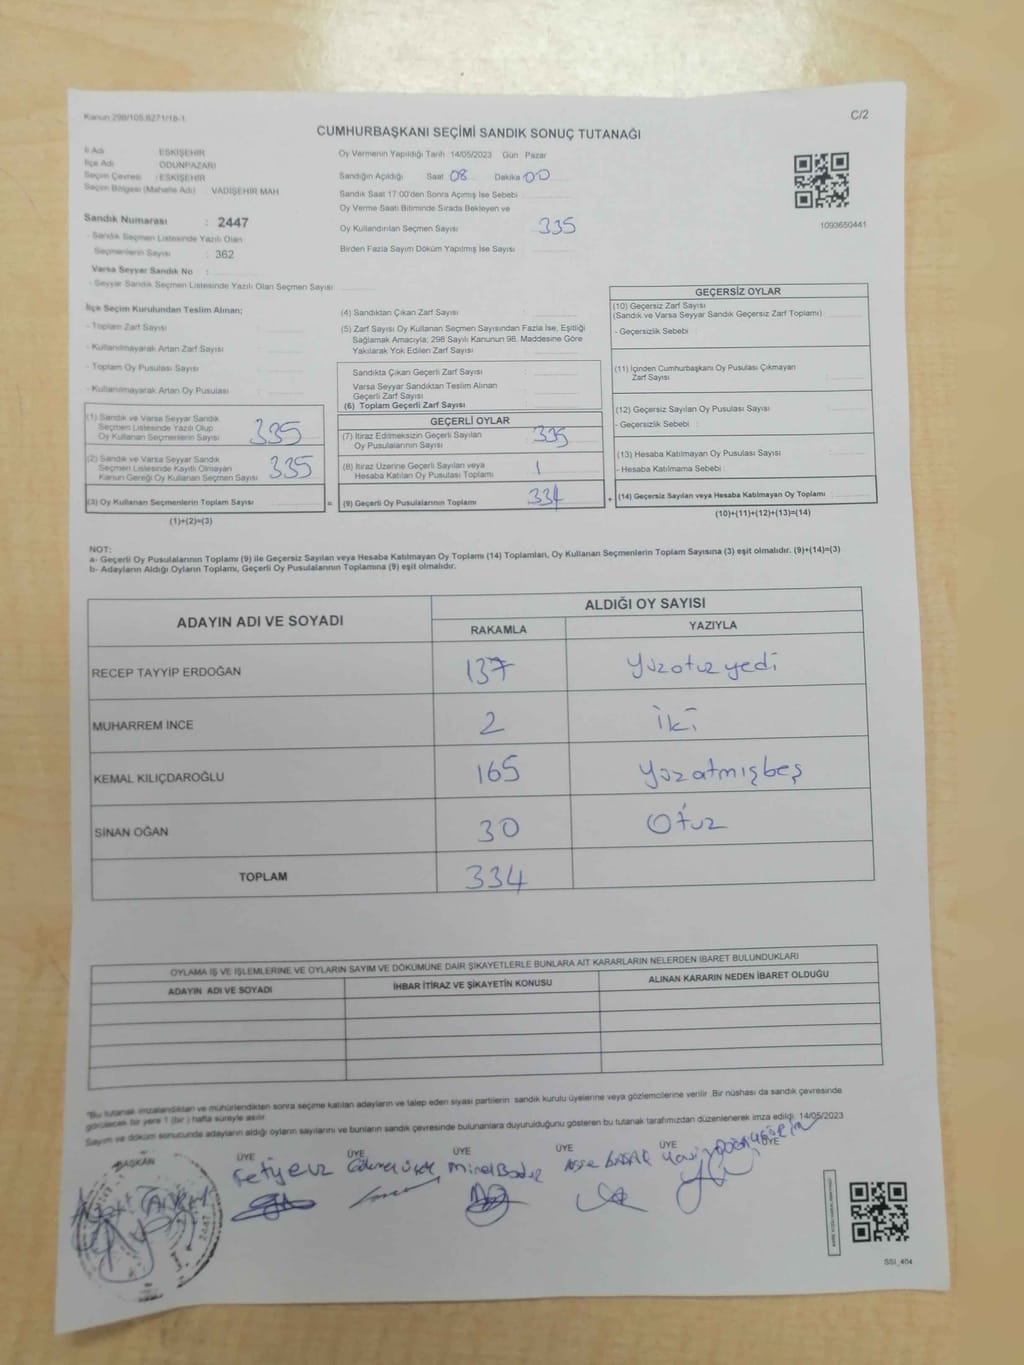 Kanun 298/105.6271/18-1
C/2
CUMHURBAŞKANI SEÇİMİ SANDIK SONUÇ TUTANAĞI
İl Adı : ESKİŞEHİR
İlçe Adı : ODUNPAZARI
Seçim Çevresi : ESKİŞEHİR
Seçim Bölgesi (Mahalle Adı) : VADİŞEHİR MAH
Sandık Numarası : 2447
- Sandık Seçmen Listesinde Yazılı Olan
Seçmenlerin Sayısı : 362
Varsa Seyyar Sandık No :
- Seyyar Sandık Seçmen Listesinde Yazılı Olan Seçmen Sayısı :
Oy Vermenin Yapıldığı Tarih 14/05/2023 Gün Pazar
Sandığın Açıldığı Saat 08 Dakika 00
Sandık Saat 17:00'den Sonra Açımış İse Sebebi
Oy Verme Saati Bitiminde Sırada Bekleyen ve
Oy Kullandırılan Seçmen Sayısı 335
Birden Fazla Sayım Döküm Yapılmış İse Sayısı
1093650441
İlçe Seçim Kurulundan Teslim Alınan;
- Toplam Zarf Sayısı :
- Kullanılmayarak Artan Zarf Sayısı :
- Toplam Oy Pusulası Sayısı :
- Kullanılmayarak Artan Oy Pusulası :
(1) Sandık ve Varsa Seyyar Sandık
Seçmen Listesinde Yazılı Olup
Oy Kullanan Seçmenlerin Sayısı : 335
(2) Sandık ve Varsa Seyyar Sandık
Seçmen Listesinde Kayıtlı Olmayan
Kanun Gereği Oy Kullanan Seçmen Sayısı : 335
(3) Oy Kullanan Seçmenlerin Toplam Sayısı : =
(1)+(2)=(3)
(4) Sandıktan Çıkan Zarf Sayısı :
(5) Zarf Sayısı Oy Kullanan Seçmen Sayısından Fazla İse, Eşitliği
Sağlamak Amacıyla; 298 Sayılı Kanunun 98. Maddesine Göre
Yakılarak Yok Edilen Zarf Sayısı :
Sandıkta Çıkan Geçerli Zarf Sayısı :
Varsa Seyyar Sandıktan Teslim Alınan
Geçerli Zarf Sayısı :
(6) Toplam Geçerli Zarf Sayısı :
GEÇERLİ OYLAR
(7) İtiraz Edilmeksizin Geçerli Sayılan
Oy Pusulalarının Sayısı : 335
(8) İtiraz Üzerine Geçerli Sayılan veya
Hesaba Katılan Oy Pusulası Toplamı : 1
(9) Geçerli Oy Pusulalarının Toplamı : 334 +
GEÇERSİZ OYLAR
(10) Geçersiz Zarf Sayısı
(Sandık ve Varsa Seyyar Sandık Geçersiz Zarf Toplamı) :
- Geçersizlik Sebebi :
(11) İçinden Cumhurbaşkanı Oy Pusulası Çıkmayan
Zarf Sayısı :
(12) Geçersiz Sayılan Oy Pusulası Sayısı :
- Geçersizlik Sebebi :
(13) Hesaba Katılmayan Oy Pusulası Sayısı :
- Hesaba Katılmama Sebebi :
(14) Geçersiz Sayılan veya Hesaba Katılmayan Oy Toplamı :
(10)+(11)+(12)+(13)=(14)
NOT:
a- Geçerli Oy Pusulalarının Toplamı (9) ile Geçersiz Sayılan veya Hesaba Katılmayan Oy Toplamı (14) Toplamları, Oy Kullanan Seçmenlerin Toplam Sayısına (3) eşit olmalıdır. (9)+(14)=(3)
b- Adayların Aldığı Oyların Toplamı, Geçerli Oy Pusulalarının Toplamına (9) eşit olmalıdır.
ADAYIN ADI VE SOYADI ALDIĞI OY SAYISI
RAKAMLA YAZIYLA
RECEP TAYYİP ERDOĞAN 137 Yüzotuzyedi
MUHARREM İNCE 2 iki
KEMAL KILIÇDAROĞLU 165 Yüzatmışbeş
SİNAN OĞAN 30 Otuz
TOPLAM 334
OYLAMA İŞ VE İŞLEMLERİNE VE OYLARIN SAYIM VE DÖKÜMÜNE DAİR ŞİKAYETLERLE BUNLARA AİT KARARLARIN NELERDEN İBARET BULUNDUKLARI
ADAYIN ADI VE SOYADI İHBAR İTİRAZ VE ŞİKAYETİN KONUSU ALINAN KARARIN NEDEN İBARET OLDUĞU
"Bu tutanak imzalandıktan ve mühürlendikten sonra seçime katılan adayların ve talep eden siyasi partilerin sandık kurulu üyelerine veya gözlemcilerine verilir. Bir nüshası da sandık çevresinde
görülecek bir yere 1 (bir) hafta süreyle asılır.
Sayım ve döküm sonucunda adayların aldığı oyların sayılarını ve bunların sandık çevresinde bulunanlara duyurulduğunu gösteren bu tutanak tarafımızdan düzenlenerek imza edildi. 14/05/2023
BAŞKAN ÜYE ÜYE ÜYE ÜYE ÜYE ÜYE
2447
SSI_404